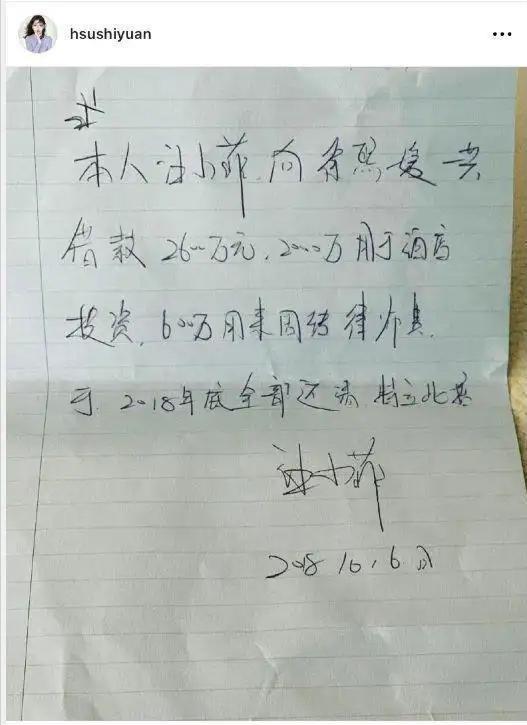 hsushiyuan
本人汪小菲向徐熙媛共
借款2600万元,2000万用于酒店
投资,600万用来周转律师费,
于2018年底全部还清 特立此
汪小菲